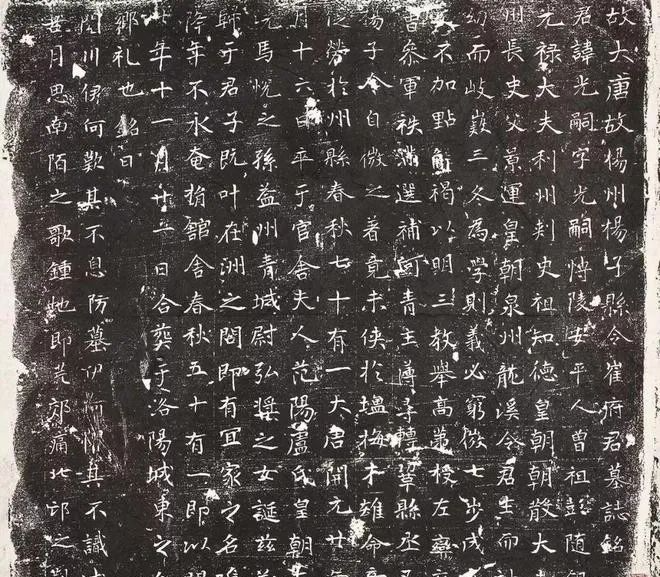 故大唐故楊州楊子縣令崔府君墓誌銘
君諱光嗣字光嗣博陵安平人曾祖彭隨銀
光祿大夫利州刺史祖知德皇朝朝散大
州長史父景運皇朝泉州龍溪令君生而
幼而岐嶷三冬為學則義必窮微七步成
文不加點解褐以明三教舉高第授左
曹參軍袟滿選補青主簿尋轉鞏縣丞
楊子令自微之著竟未俠於塩梅才雄命
從勞於州縣春秋七十有一大唐開元廿
月十六日卒于官舍夫人范陽盧氏皇朝
馬悅之孫益州青城尉弘獎之女誕茲
歸于君子既叶在洲之閤即有宜家之名
降年不永奄捐館舍春秋五十有一即以
年十一月廿日合葬于洛陽城東之
鄉禮也銘曰
閱川伊何歎其不息防墓伊何其不識
月思南陌之歌鍾她即荒郊痛北邙之